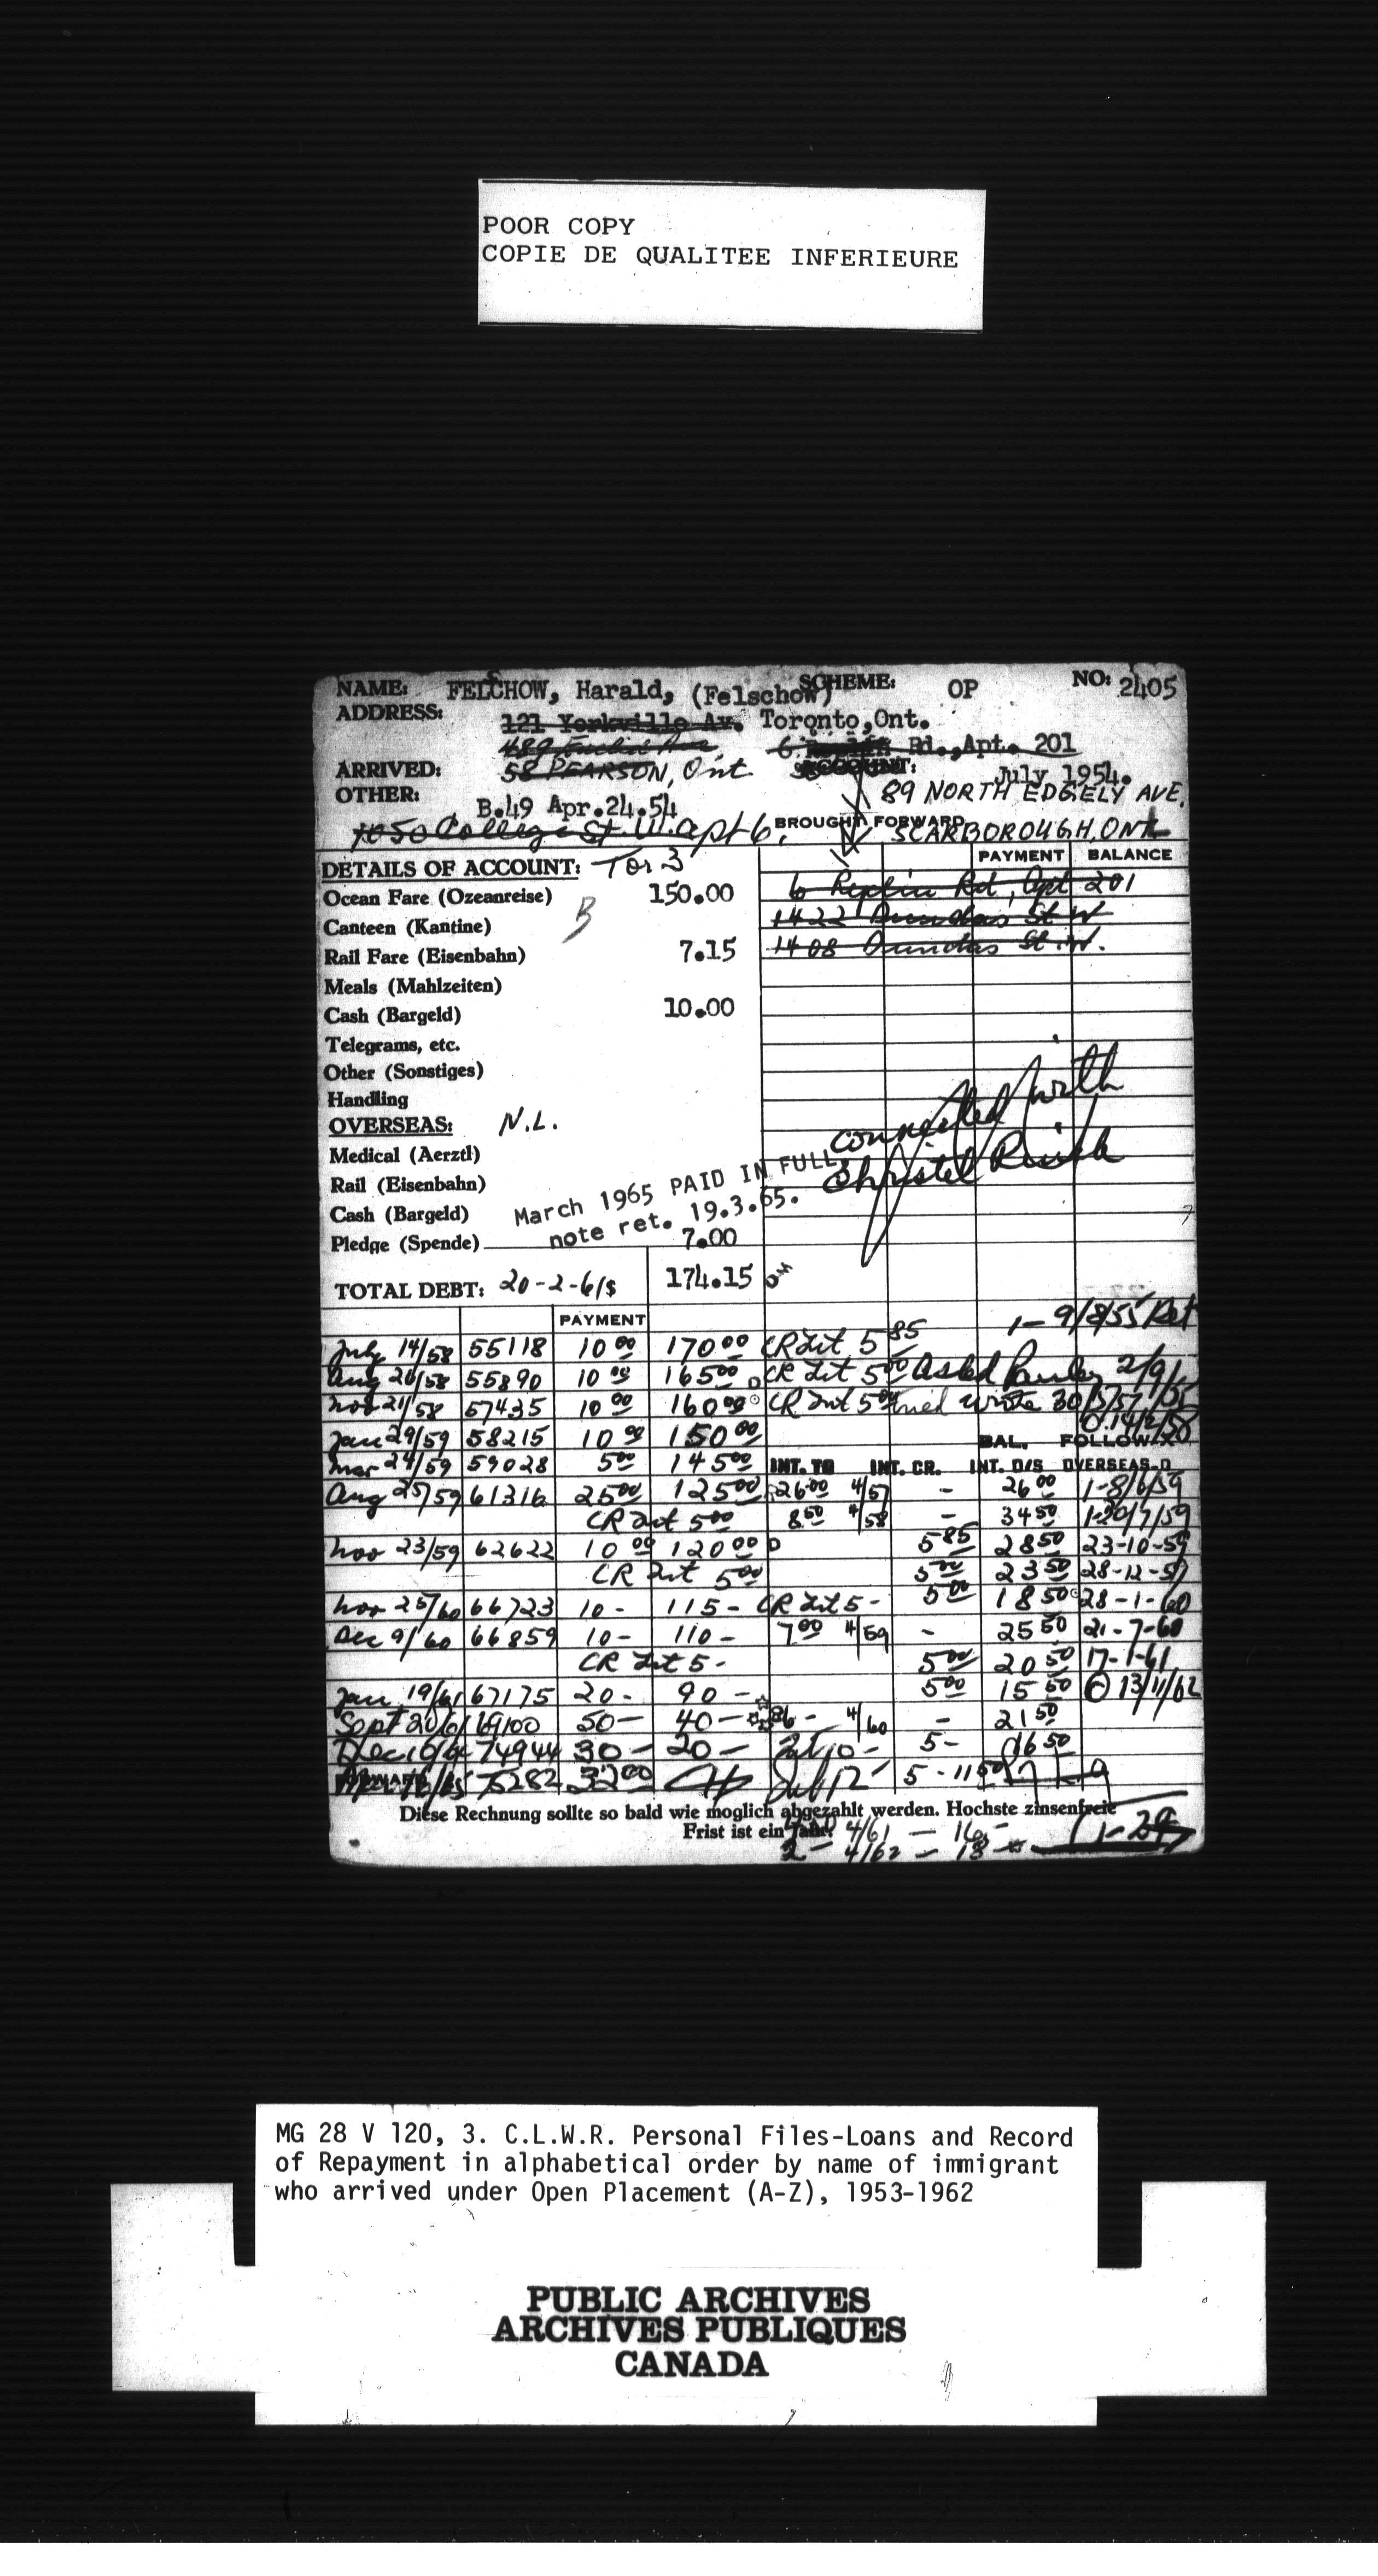 POOR COPY
COPIE DE QUALITEE INFERIEURE
NAME: FELCHOW, Harald, (Felschow) SCHEME: OP NO: 2405
ADDRESS: 121 Yorkville Av. Toronto, Ont.
489 Euclid Ave. 6 Rd., Apt. 201
ARRIVED: 58 PEARSON, Ont ACCOUNT: July 1954.
OTHER: B.49 Apr.24.54 89 NORTH EDGELY AVE.
1050 College St W. apt 6, BROUGHT FORWARD SCARBOROUGH, ONT
PAYMENT BALANCE
DETAILS OF ACCOUNT: Tor 3
Ocean Fare (Ozeanreise) B 150.00 6 Rd, Apt 201
Canteen (Kantine) 1422 Dundas St W
Rail Fare (Eisenbahn) 7.15 1408 Dundas St. W.
Meals (Mahlzeiten)
Cash (Bargeld) 10.00
Telegrams, etc.
Other (Sonstiges)
Handling
OVERSEAS: N.L. connected with
Medical (Aerztl) Christel
Rail (Eisenbahn)
March 1965 PAID IN FULL
Cash (Bargeld) note ret. 19.3.65.
Pledge (Spende) 7.00
TOTAL DEBT: 20-2-61$ 174.15
PAYMENT 1- 9/8/55 Ret
July 14/58 55118 10 00 170 00 CR Int 5 85
Aug 20/58 55890 10 00 165 00 CR Int 5 00 Asked 2/9/
Nov 21/58 57435 10 00 160 00 CR Int 5 00 wrote 30/5/57
Jan 29/59 58215 10 00 150 00
BAL. FOLLOW-
Mar 24/59 59028 5 00 145 00 INT. TO INT. CR. INT. O/S OVERSEAS-O
Aug 25/59 61316 25 00 125 00 26 00 4/57 - 26 00 1-8/6/59
CR Int 5 00 8 50 4/58 - 34 50 1-20/7/59
Nov 23/59 62622 10 00 120 00 5 85 28 50 23-10-59
CR Int 5 00 5 00 23 50 28-12-59
Nov 25/60 66723 10- 115- CR Int 5- 5 00 18 50 28-1-60
Dec 9/60 66859 10- 110- 7 00 4/59 - 25 50 21-7-60
CR Int 5- 5 00 20 50 17-1-61
Jan 19/61 67175 20- 90- 5 00 15 50 13/11/62
Sept 20/61 69100 50- 40- 4/60 - 21 50
Dec 74944 30- 20- Int 10- 5- 16 50
75282 32 00 Int 12 5-11 50
Diese Rechnung sollte so bald wie moglich abgezahlt werden. Hochste zinsenfreie
Frist ist ein Jahr. 4/61 - 16-
2- 4/62 - 18-
MG 28 V 120, 3. C.L.W.R. Personal Files-Loans and Record
of Repayment in alphabetical order by name of immigrant
who arrived under Open Placement (A-Z), 1953-1962
PUBLIC ARCHIVES
ARCHIVES PUBLIQUES
CANADA